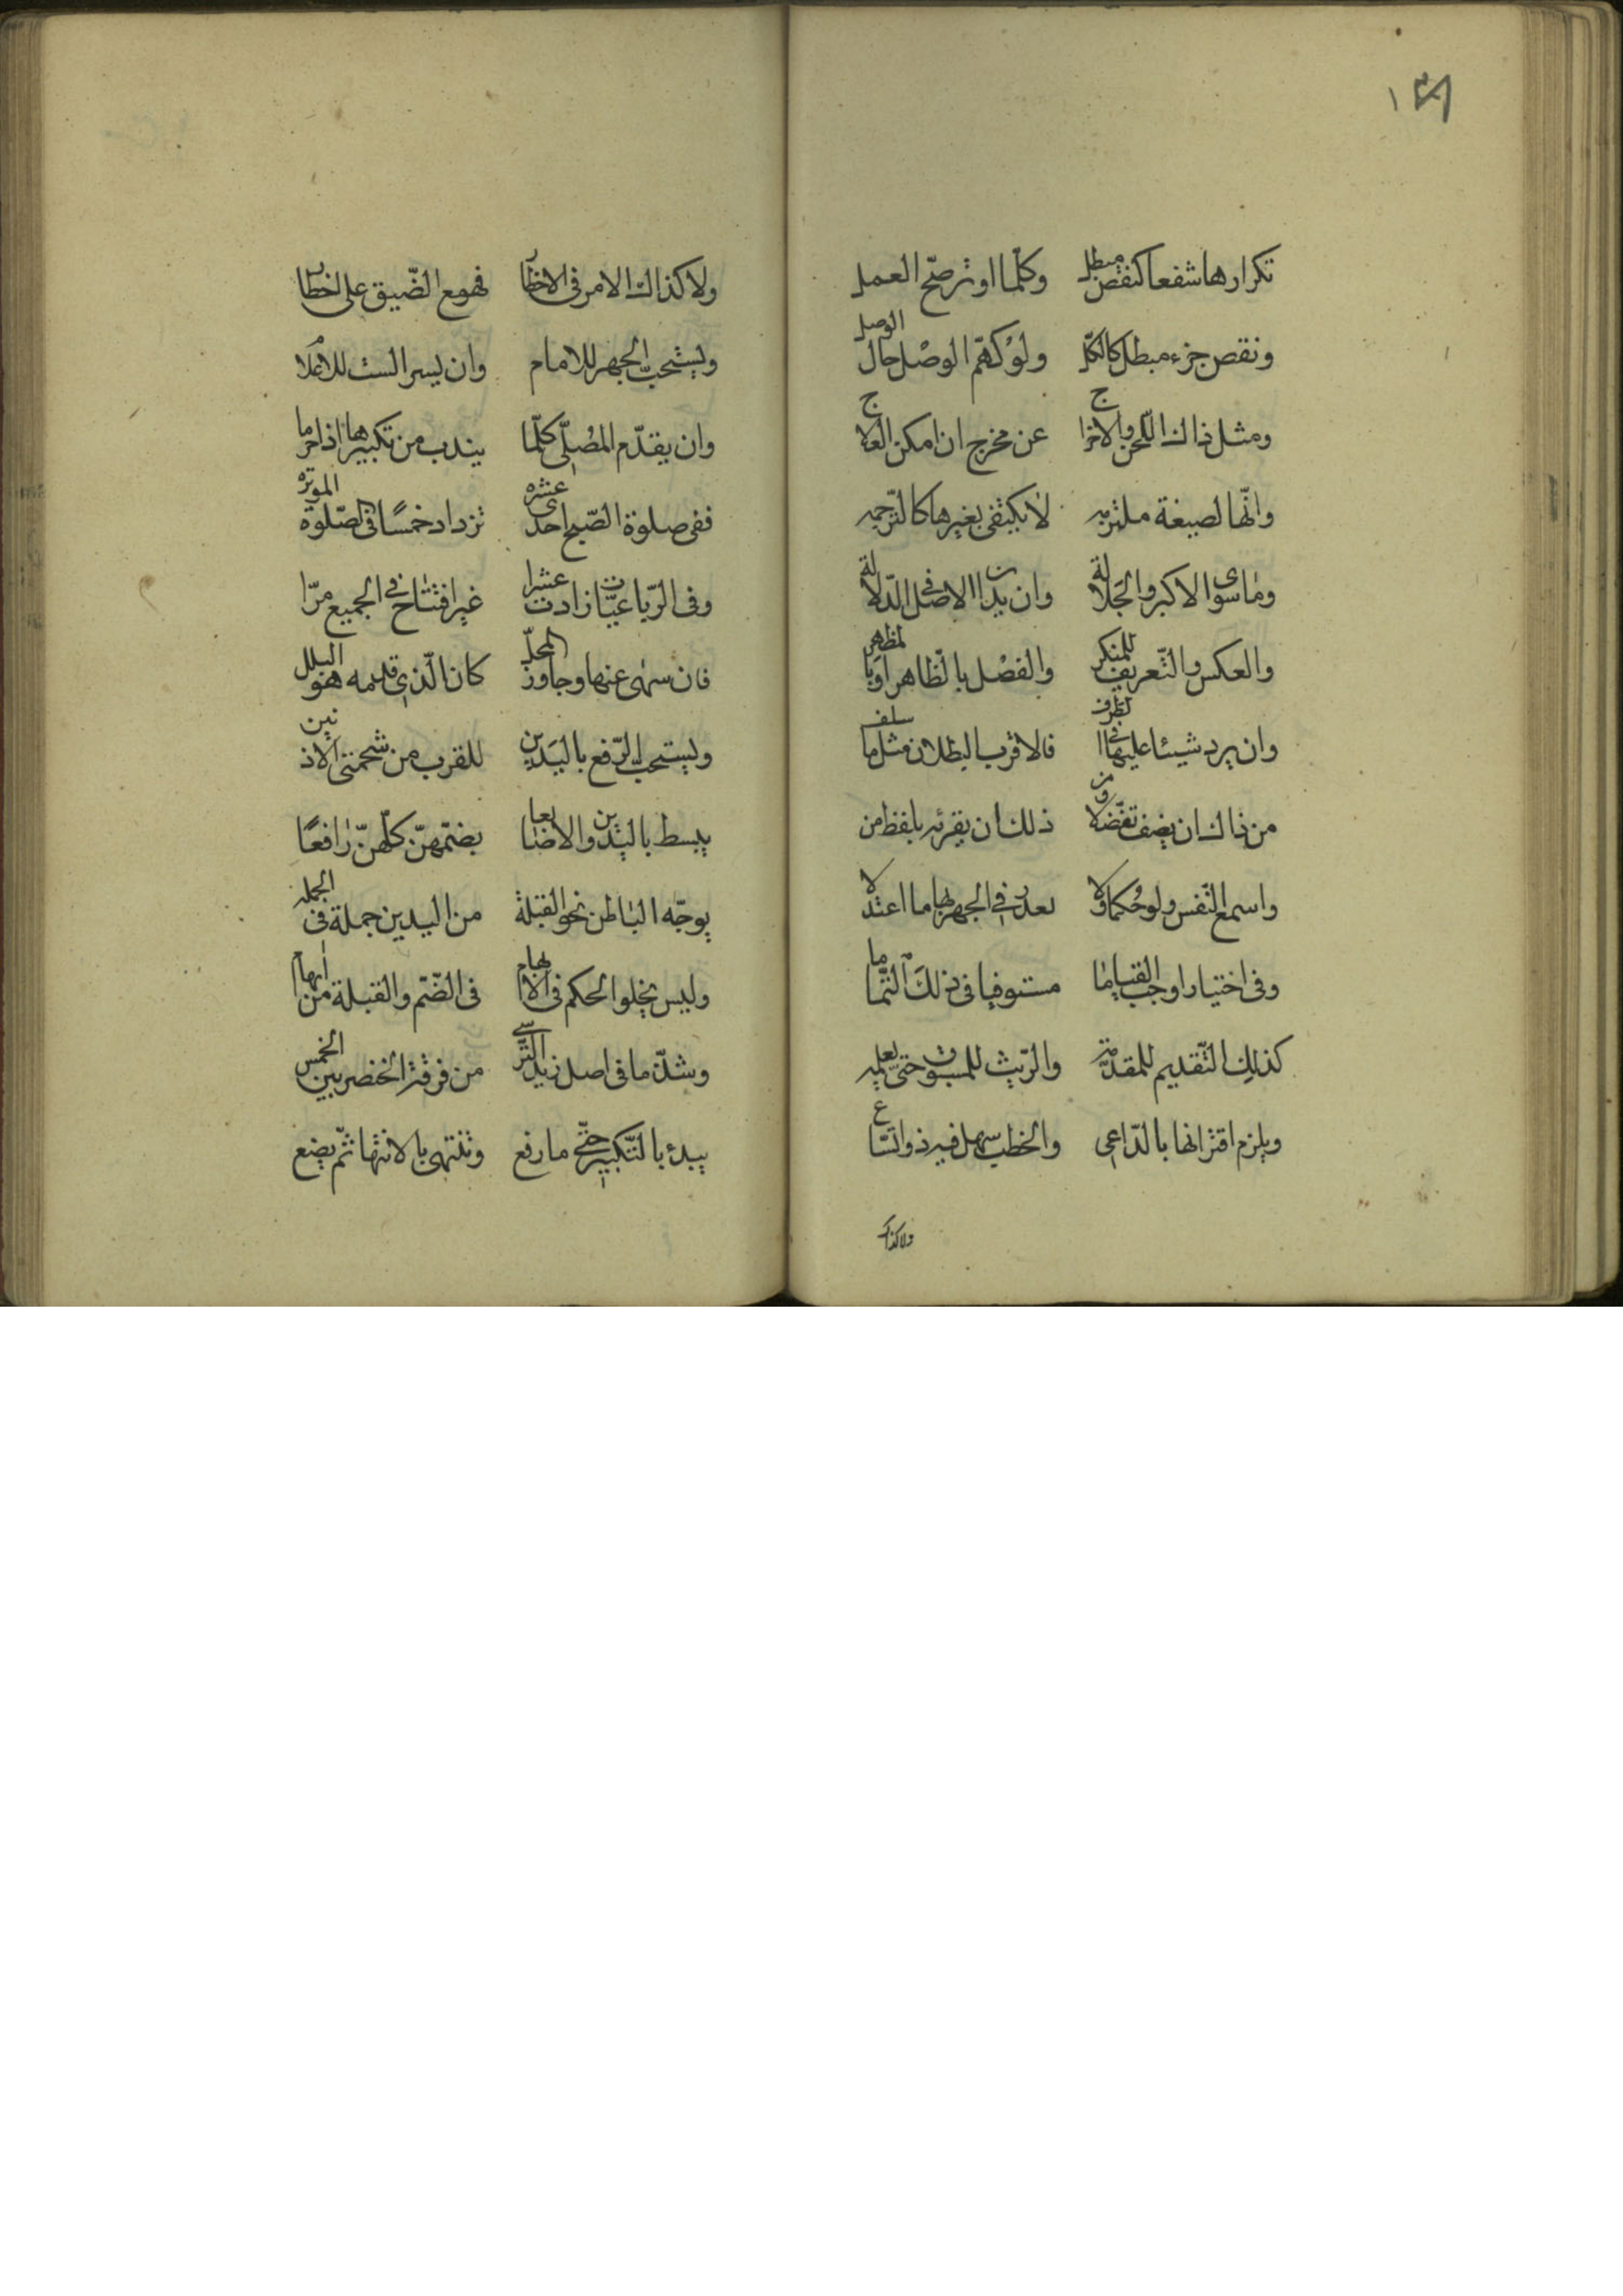 ١٣٨
تكرارها شفعا كنقص مبطل وكلّما اوتر صحّ العمل
ونقص جزء مبطل كالكلّ ولو كهمز الوصل حال الوصل
ومثل ذاك اللّحن والاخراج عن مخرج ان امكن العلاج
وانّها لصيغة ملتزمه لا يكتفى بغيرها كالتّرجمه
وما سوى الاكبر والجلالة وان يدانا الاصل فى الدّلالة
والعكس والتّعريف للمنكر والفصل بالظّاهر او بالمظهر
وان يرد شيئا عليها فى الطرف فالاقرب البطلان مثل ما سلف
من ذاك ان يضف تفضّلا ومن ذلك ان يقرنه بلفظ من
واسمع النّفس ولو حكما ولا بعد فى الجهر بها ما اعتدلا
وفى اختيار اوجب القياما مستوفيا فى ذلك التّماما
كذلك التّقديم للمقدّمه والرّيث للمسبوق حتّى يعلمه
ويلزم اقترانها بالدّاعى والخطب سهل فيه ذو اتّساع
ولا كذاك
ولا كذاك الامر فى الاخطار فهو مع الضّيق على اخطار
ويستحبّ الجهر للامام وان يسر الست للاعلام
وان يقدّم المصلّى كلّما يندب من تكبيرها اذ احرما
ففى صلوة الصّبح احدى عشره تزداد خمسًا فى الصّلوة الموتره
وفى الرّباعيّات زادت عشرا غير افتتاح فى الجميع مرّا
فان سهى عنها وجاوز المحلّ كان الّذى قدمه هو البدل
ويستحبّ الرّفع باليدين للقرب من شحمتى الاذنين
يبسط باليدين والاضابعا يضمّهنّ كلّهنّ رافعًا
يوجّه الباطن نحو القبلة من اليدين جملة فى الجمله
وليس يخلو الحكم فى الابهام فى الضّمّ والقبلة من ابهام
وشذّ ما فى اصل زيد النّرسى من فرقة الخنصر بين الخمس
يبدء بالتّكبير حتّى ما رفع وتنتهى بالانتها ثمّ يضع